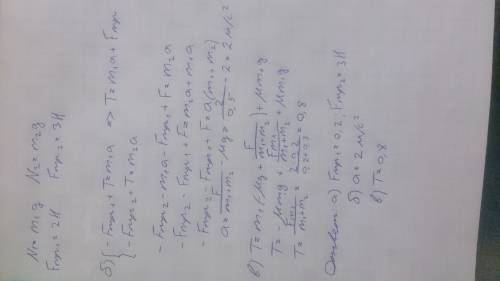 N₁=m₁g N₂=m₂g
Fтр₁=2H Fтр₂=3H
б) { -Fтр₁+T=m₁a => T=m₁a+Fтр₁
-Fтр₂+T=m₂a
-Fтр₂-m₁a-Fтр₁+F=m₂a
-Fтр₂-Fтр₁+F=m₂a+m₁a
-Fтр₂-Fтр₁+F=a(m₁+m₂)
a=F/(m₁+m₂)-μg=2/0,5-2=2м/с²
в) T=m₁(-μg+F/(m₁+m₂))+μm₁g
T=-μm₁g+Fm₁/(m₁+m₂)+μm₁g
T=Fm₁/(m₁+m₂)=2·0,2/(0,2+0,3)=0,8
Ответ: а) Fтр₁=0,2, Fтр₂=3H
б) a=2м/с²
в) T=0,8